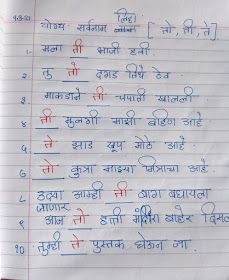 योग्य सर्वनाम लिहा [ तो, ती, ते ]
१. मला ती भाजी हवी
२ तू तो दगड तिथे ठेव
३ माकडाने ती चपाती खाल्ली
४ ती मुलगी माझी बहिण आहे
५ ते झाड खूप मोठे आहे
६ तो कुत्रा माझ्या मित्राचा आहे.
८ उद्या आम्ही ती बाग बघायला जाणार
९ आज तो हत्ती बाहेर
१० तुम्ही ते पुस्तक घेऊन जा.